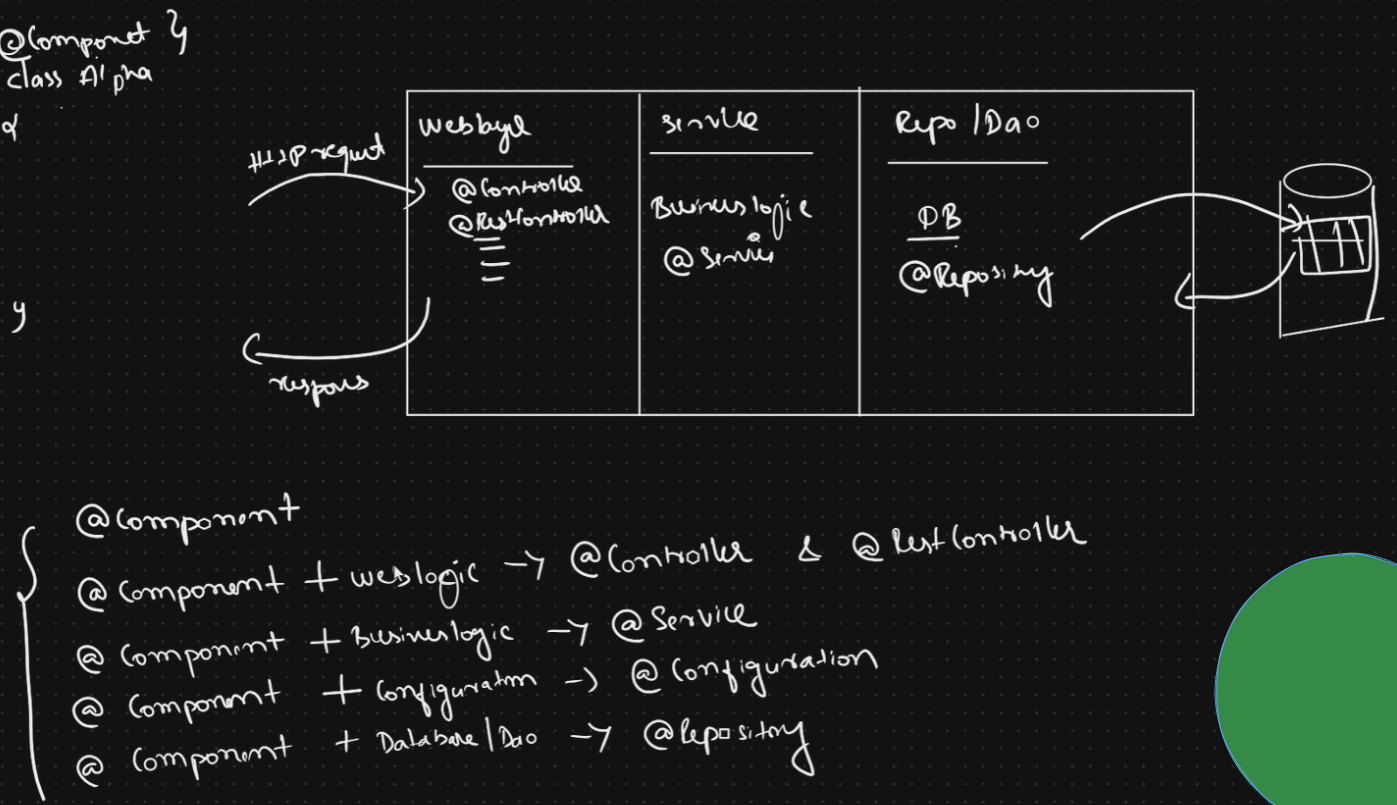 @Componet }
class Alpha
{
}
HTTP request
respons
Weblayer
@Controller
@RestController
Service
Business logic
@Service
Repo/Dao
DB
@Repository
@Component
@Component + weblogic → @Controller & @RestController
@Component + Businesslogic → @Service
@Component + Configuration → @Configuration
@Component + Database/Dao → @Repository